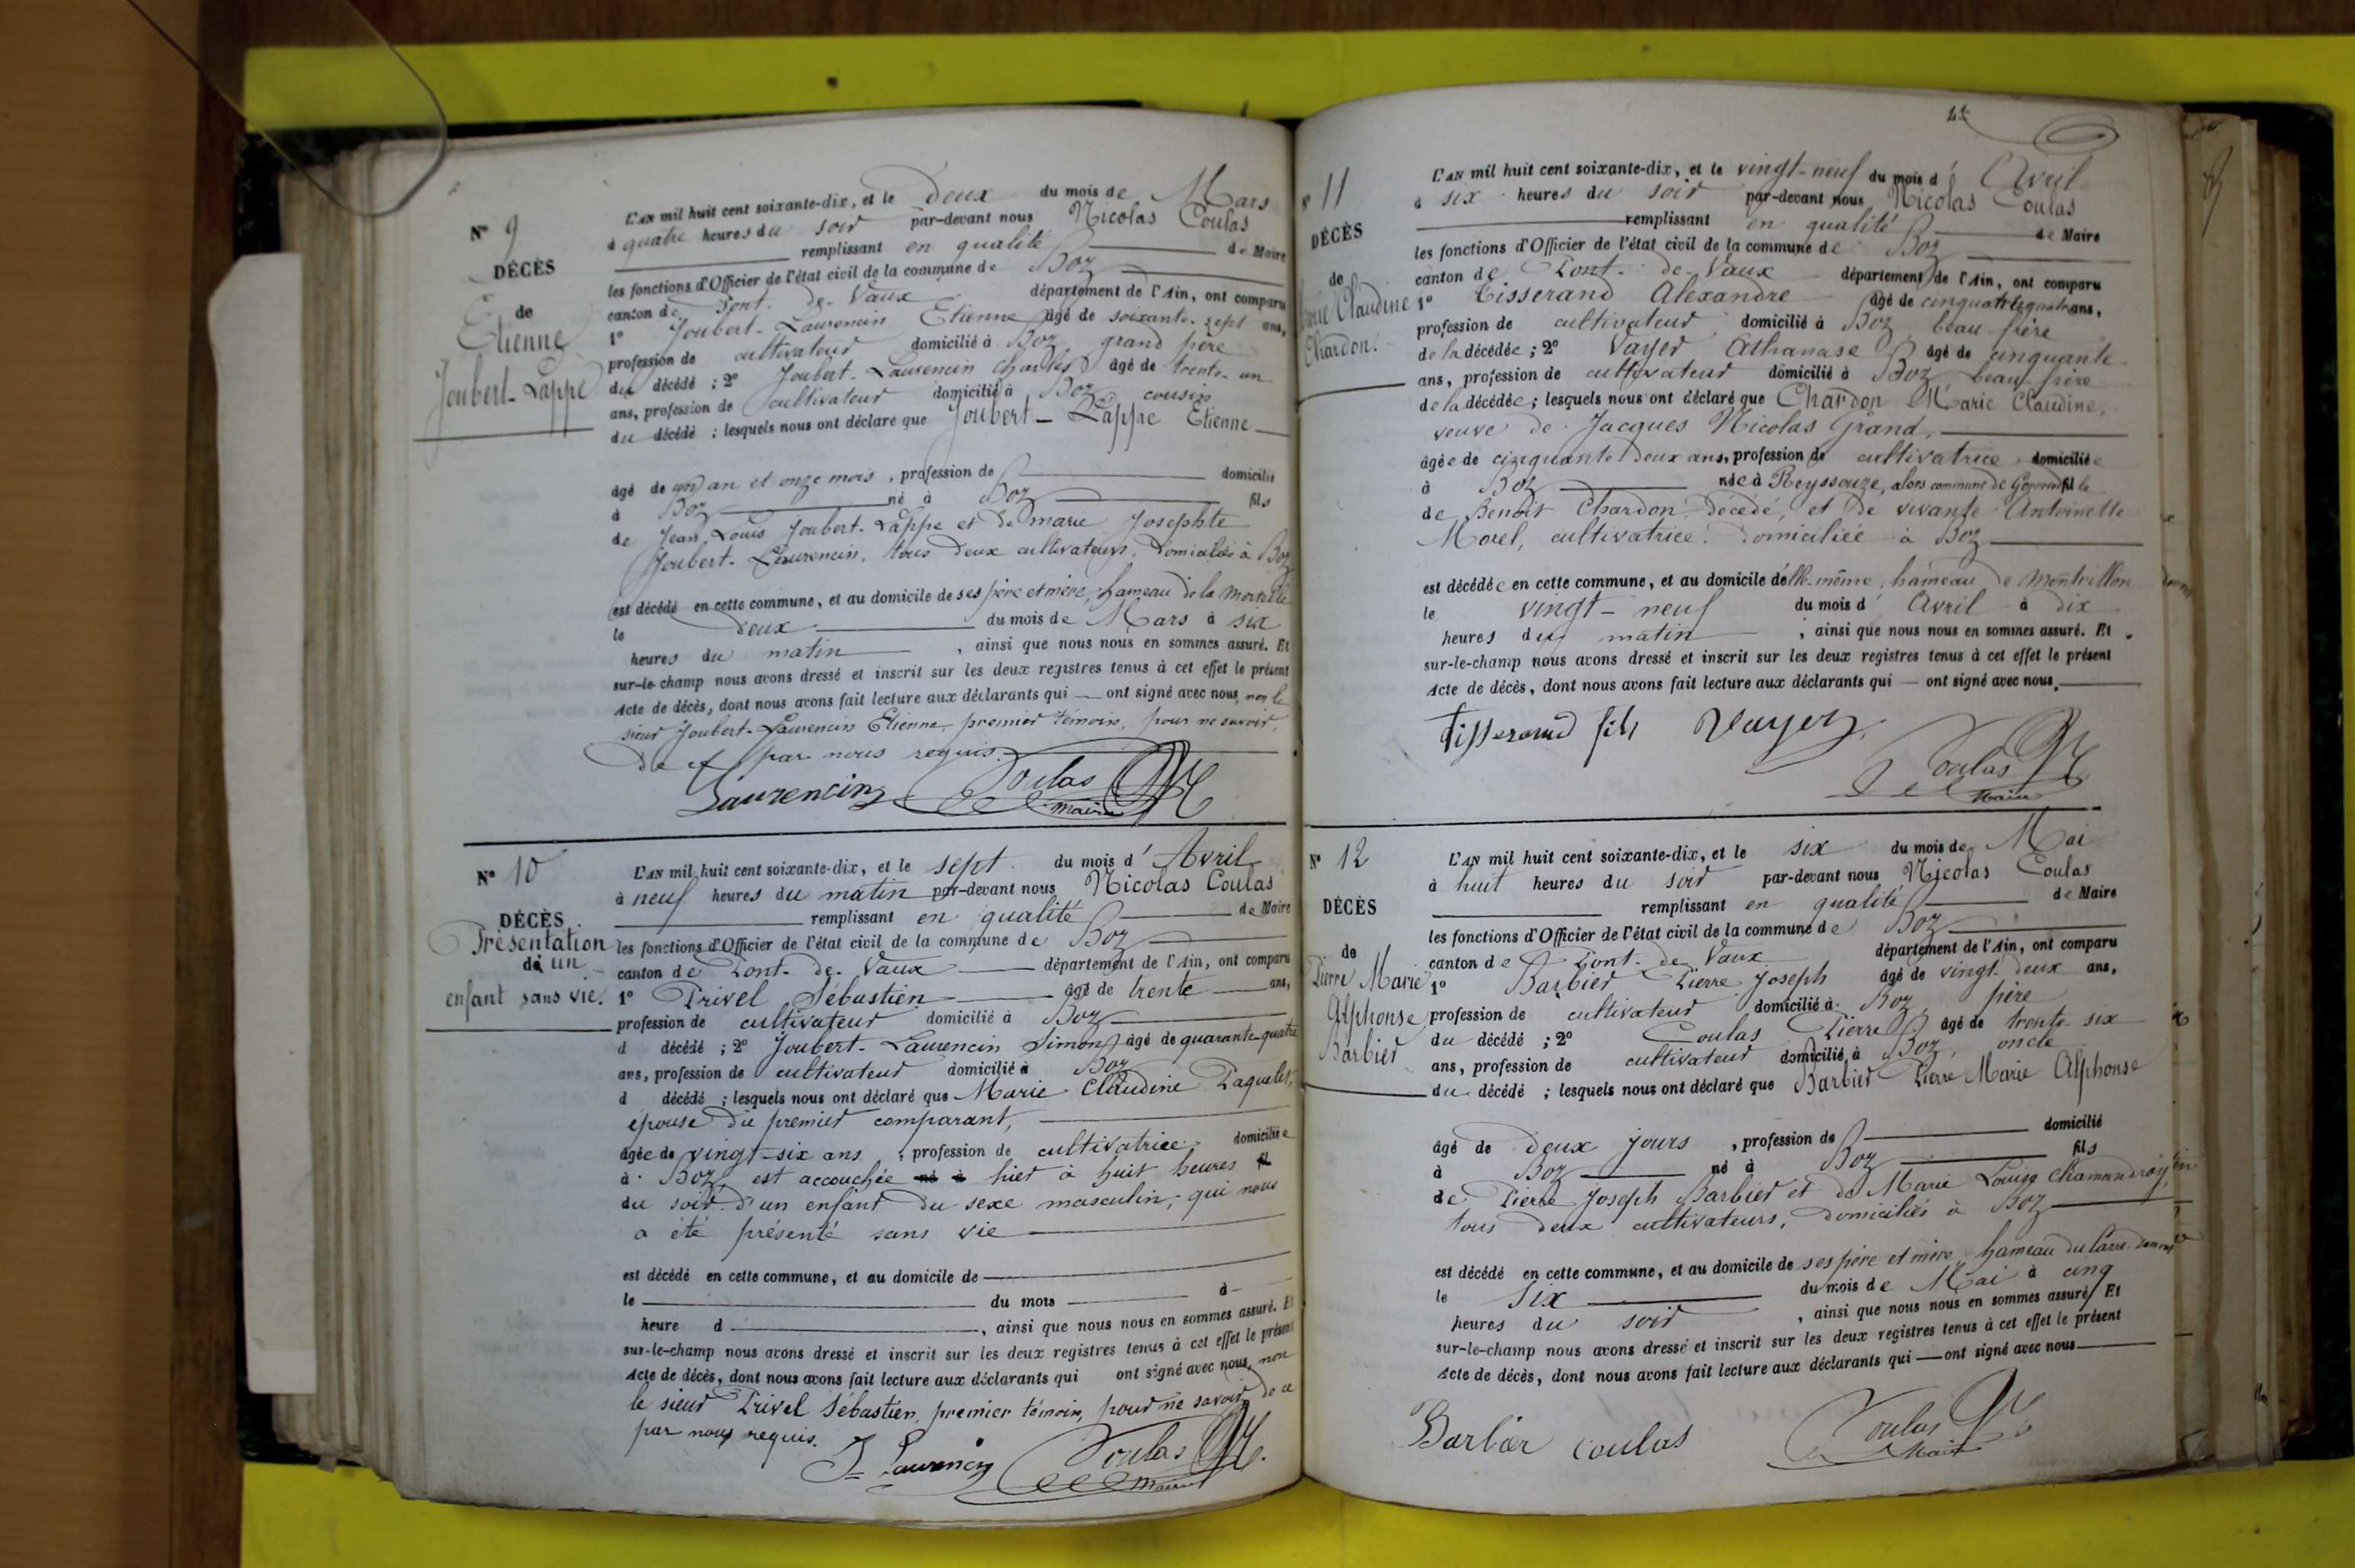 N° 9
DÉCÈS
de
Etienne
Joubert-Lappe
L'AN mil huit cent soixante-dix, et le deux du mois de Mars
à quatre heures du soir par-devant nous Nicolas Coulas
remplissant en qualité de Maire
les fonctions d'Officier de l'état civil de la commune de Boz
canton de Pont-de-Vaux département de l'Ain, ont comparu
1° Joubert-Laurencin Etienne âgé de soixante-sept ans,
profession de cultivateur domicilié à Boz grand père
du décédé ; 2° Joubert-Laurencin Charles âgé de trente-un
ans, profession de cultivateur domicilié à Boz cousin
du décédé ; lesquels nous ont déclaré que Joubert-Lappe Etienne
âgé de un an et onze mois, profession de domicilié
à Boz né à Boz fils
de Jean Louis Joubert-Lappe et de marie Josephte
Joubert-Laurencin, tous deux cultivateurs, domiciliés à Boz
est décédé en cette commune, et au domicile de ses père et mère, hameau de la
le deux du mois de Mars à six
heures du matin, ainsi que nous nous en sommes assuré. Et
sur-le-champ nous avons dressé et inscrit sur les deux registres tenus à cet effet le présent
Acte de décès, dont nous avons fait lecture aux déclarants qui ont signé avec nous, non le
sieur Joubert-Laurencin Etienne, premier témoin, pour ne savoir,
de ce par nous requis.
Laurencin Coulas
Maire
N° 10
DÉCÈS.
Présentation
d'un
enfant sans vie.
L'AN mil huit cent soixante-dix, et le sept du mois d'Avril
à neuf heures du matin par-devant nous Nicolas Coulas
remplissant en qualité de Maire
les fonctions d'Officier de l'état civil de la commune de Boz
canton de Pont-de-Vaux département de l'Ain, ont comparu
1° Privel Sébastien âgé de trente ans,
profession de cultivateur domicilié à Boz
d décédé ; 2° Joubert-Laurencin Simon âgé de quarante-quatre
ans, profession de cultivateur domicilié à Boz
d décédé ; lesquels nous ont déclaré que Marie Claudine Paquelet,
épouse du premier comparant,
âgée de vingt-six ans, profession de cultivatrice domiciliée
à Boz, est accouchée né à hier à huit heures fil
du soir d'un enfant du sexe masculin, qui nous
a été présenté sans vie
est décédé en cette commune, et au domicile de
le du mois à
heure d , ainsi que nous nous en sommes assuré. Et
sur-le-champ nous avons dressé et inscrit sur les deux registres tenus à cet effet le présent
Acte de décès, dont nous avons fait lecture aux déclarants qui ont signé avec nous, non
le sieur Privel Sébastien, premier témoin, pour ne savoir de ce
par nous requis.
J Laurencin Coulas
Maire
N° 11
DÉCÈS
de
Marie Claudine
Chardon.
L'AN mil huit cent soixante-dix, et le vingt-neuf du mois d'Avril
à six heures du soir par-devant nous Nicolas Coulas
remplissant en qualité de Maire
les fonctions d'Officier de l'état civil de la commune de Boz
canton de Pont-de-Vaux département de l'Ain, ont comparu
1° Tisserand Alexandre âgé de cinquante-quatre ans,
profession de cultivateur domicilié à Boz beau-frère
de la décédée ; 2° Vayer Athanase âgé de cinquante
ans, profession de cultivateur domicilié à Boz beau-frère
de la décédée ; lesquels nous ont déclaré que Chardon Marie Claudine,
veuve de Jacques Nicolas Grand,
âgée de cinquante-deux ans, profession de cultivatrice domiciliée
à Boz née à Reyssouze, alors commune de Gorrevod fille
de Benoît Chardon, décédé, et de vivante Antoinette
Morel, cultivatrice, domiciliée à Boz
est décédée en cette commune, et au domicile d'elle-même, hameau de Montrillon
le vingt-neuf du mois d'Avril à dix
heures du matin, ainsi que nous nous en sommes assuré. Et
sur-le-champ nous avons dressé et inscrit sur les deux registres tenus à cet effet le présent
Acte de décès, dont nous avons fait lecture aux déclarants qui ont signé avec nous.
Tisserand fils Vayer
Coulas
Maire
N° 12
DÉCÈS
de
Pierre Marie
Alphonse
Barbier
L'AN mil huit cent soixante-dix, et le six du mois de Mai
à huit heures du soir par-devant nous Nicolas Coulas
remplissant en qualité de Maire
les fonctions d'Officier de l'état civil de la commune de Boz
canton de Pont-de-Vaux département de l'Ain, ont comparu
1° Barbier Pierre Joseph âgé de vingt-deux ans,
profession de cultivateur domicilié à Boz, père
du décédé ; 2° Coulas Pierre âgé de trente-six
ans, profession de cultivateur domicilié à Boz, oncle
du décédé ; lesquels nous ont déclaré que Barbier Pierre Marie Alphonse
âgé de deux jours, profession de domicilié
à Boz né à Boz fils
de Pierre Joseph Barbier et de Marie Louise Chamandray,
tous deux cultivateurs, domiciliés à Boz
est décédé en cette commune, et au domicile de ses père et mère, hameau du
le six du mois de Mai à cinq
heures du soir, ainsi que nous nous en sommes assuré. Et
sur-le-champ nous avons dressé et inscrit sur les deux registres tenus à cet effet le présent
Acte de décès, dont nous avons fait lecture aux déclarants qui ont signé avec nous
Barbier Coulas Coulas
Maire